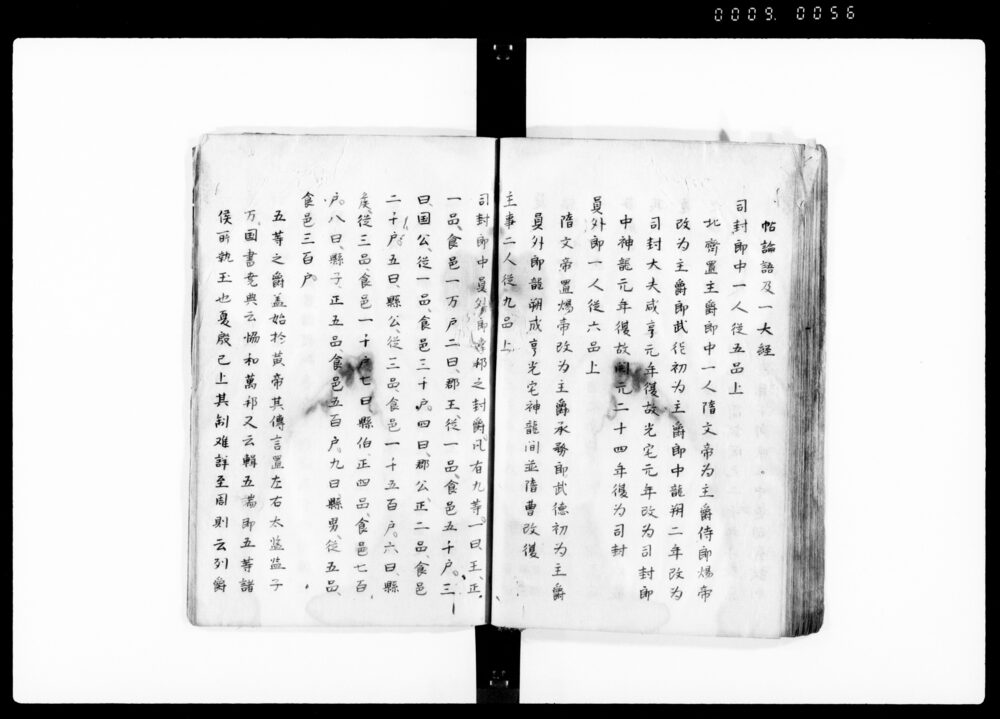 0009. 0056
帖論語及一大經
司封郎中一人從五品上
北齊置主爵郎中一人隋文帝為主爵侍郎煬帝
改為主爵郎武徳初為主爵郎中龍朔二年改為
司封大夫咸亨元年復故光宅元年改為司封郎
中神龍元年復故開元二十四年復為司封
員外郎一人從六品上
隋文帝置煬帝改為主爵承務郎武德初為主爵
員外郎龍朔咸亨光宅神龍间並隋曹改復
主事二人從九品上
司封郎中員外郎掌邦之封爵凡有九等一曰王正
一品食邑一万户二曰郡王從一品食邑五千户三
曰国公從一品食邑三千户四曰郡公正二品食邑
二千户五曰縣公從二品食邑一千五百户六曰縣
侯從三品食邑一千户七曰縣伯正四品食邑七百
户八曰縣子正五品食邑五百户九曰縣男從五品
食邑三百户
五等之爵盖始於黄帝其傳言置左右太监监子
万国書尭典云恊和萬邦又云輯五瑞即五等諸
侯所執玉也夏殷已上其制难詳至周則云列爵